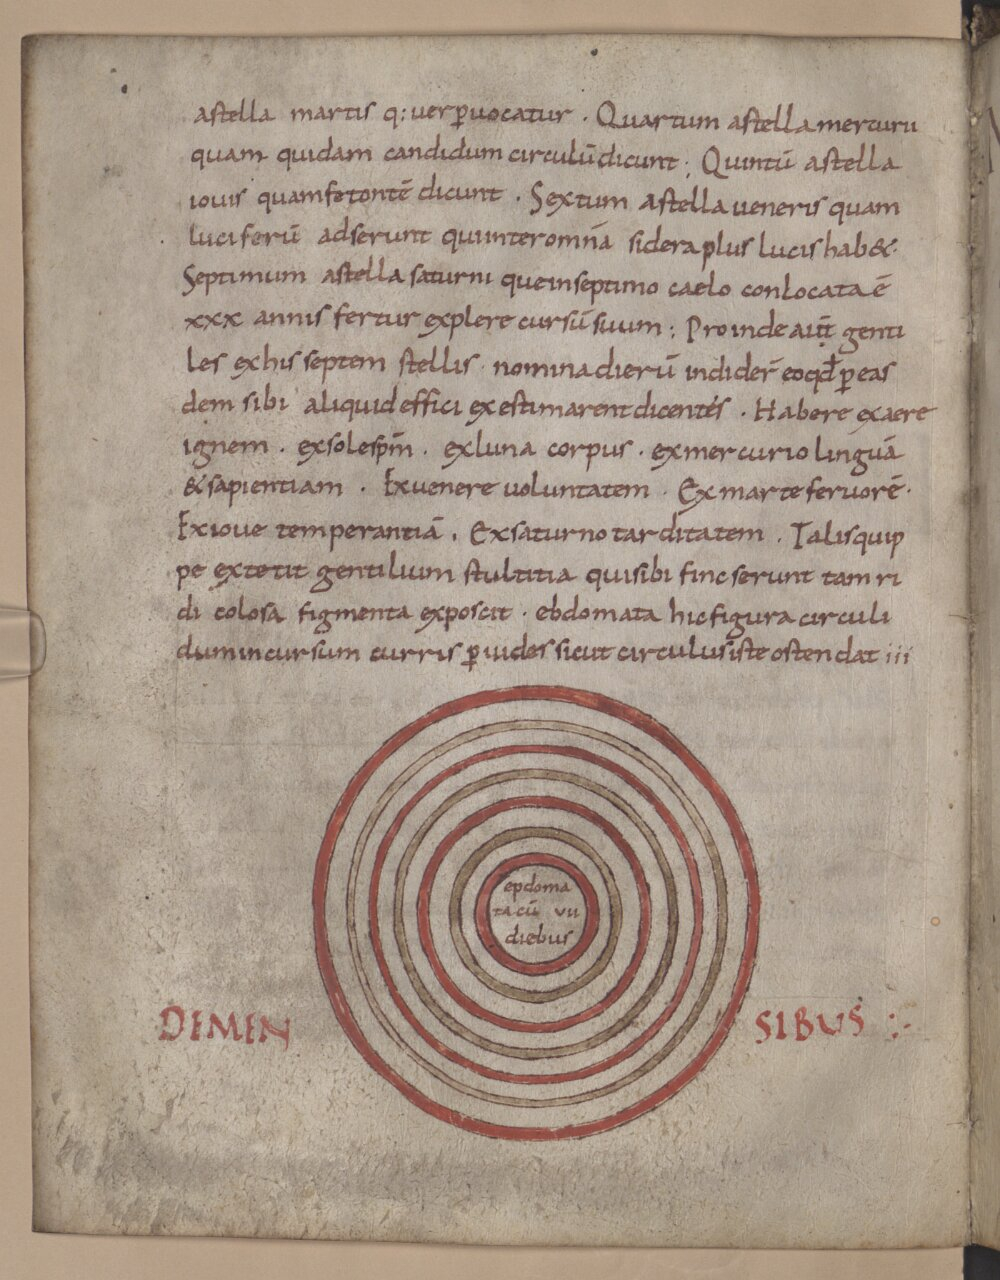 astella martis q: uerꝑuocatur . Quartum astella mercurii
quam quidam candidum circulū dicunt ; Quintū astella
iouis quam fetontē dicunt . Sextum astella ueneris quam
luciferū adserunt qui inter omnia sidera plus lucis hab&.
Septimum astella saturni que in septimo caelo conlocata ē
xxx annis fertur explere cursū suum ; Proinde aut̄ genti
les ex his septem stellis . nomina dierū indider̄ eo qd̄ ꝑ eas
dem sibi aliquid effici existimarent dicentes . Habere ex aere
ignem . ex sole spm̄ . ex luna corpus . ex mercurio linguā
& sapientiam . Ex uenere uoluntatem . Ex marte feruorē .
Ex ioue temperantiā . Ex saturno tarditatem . Talis quip
pe extetit gentilium stultitia qui sibi finc serunt tam ri
di colosa figmenta exposcit . ebdomata hic figura circuli
dum in cursum curris ꝑ uides sicut circulus iste ostendat iii
epdoma
ta cū vii
diebus
DEMEN SIBUS :-